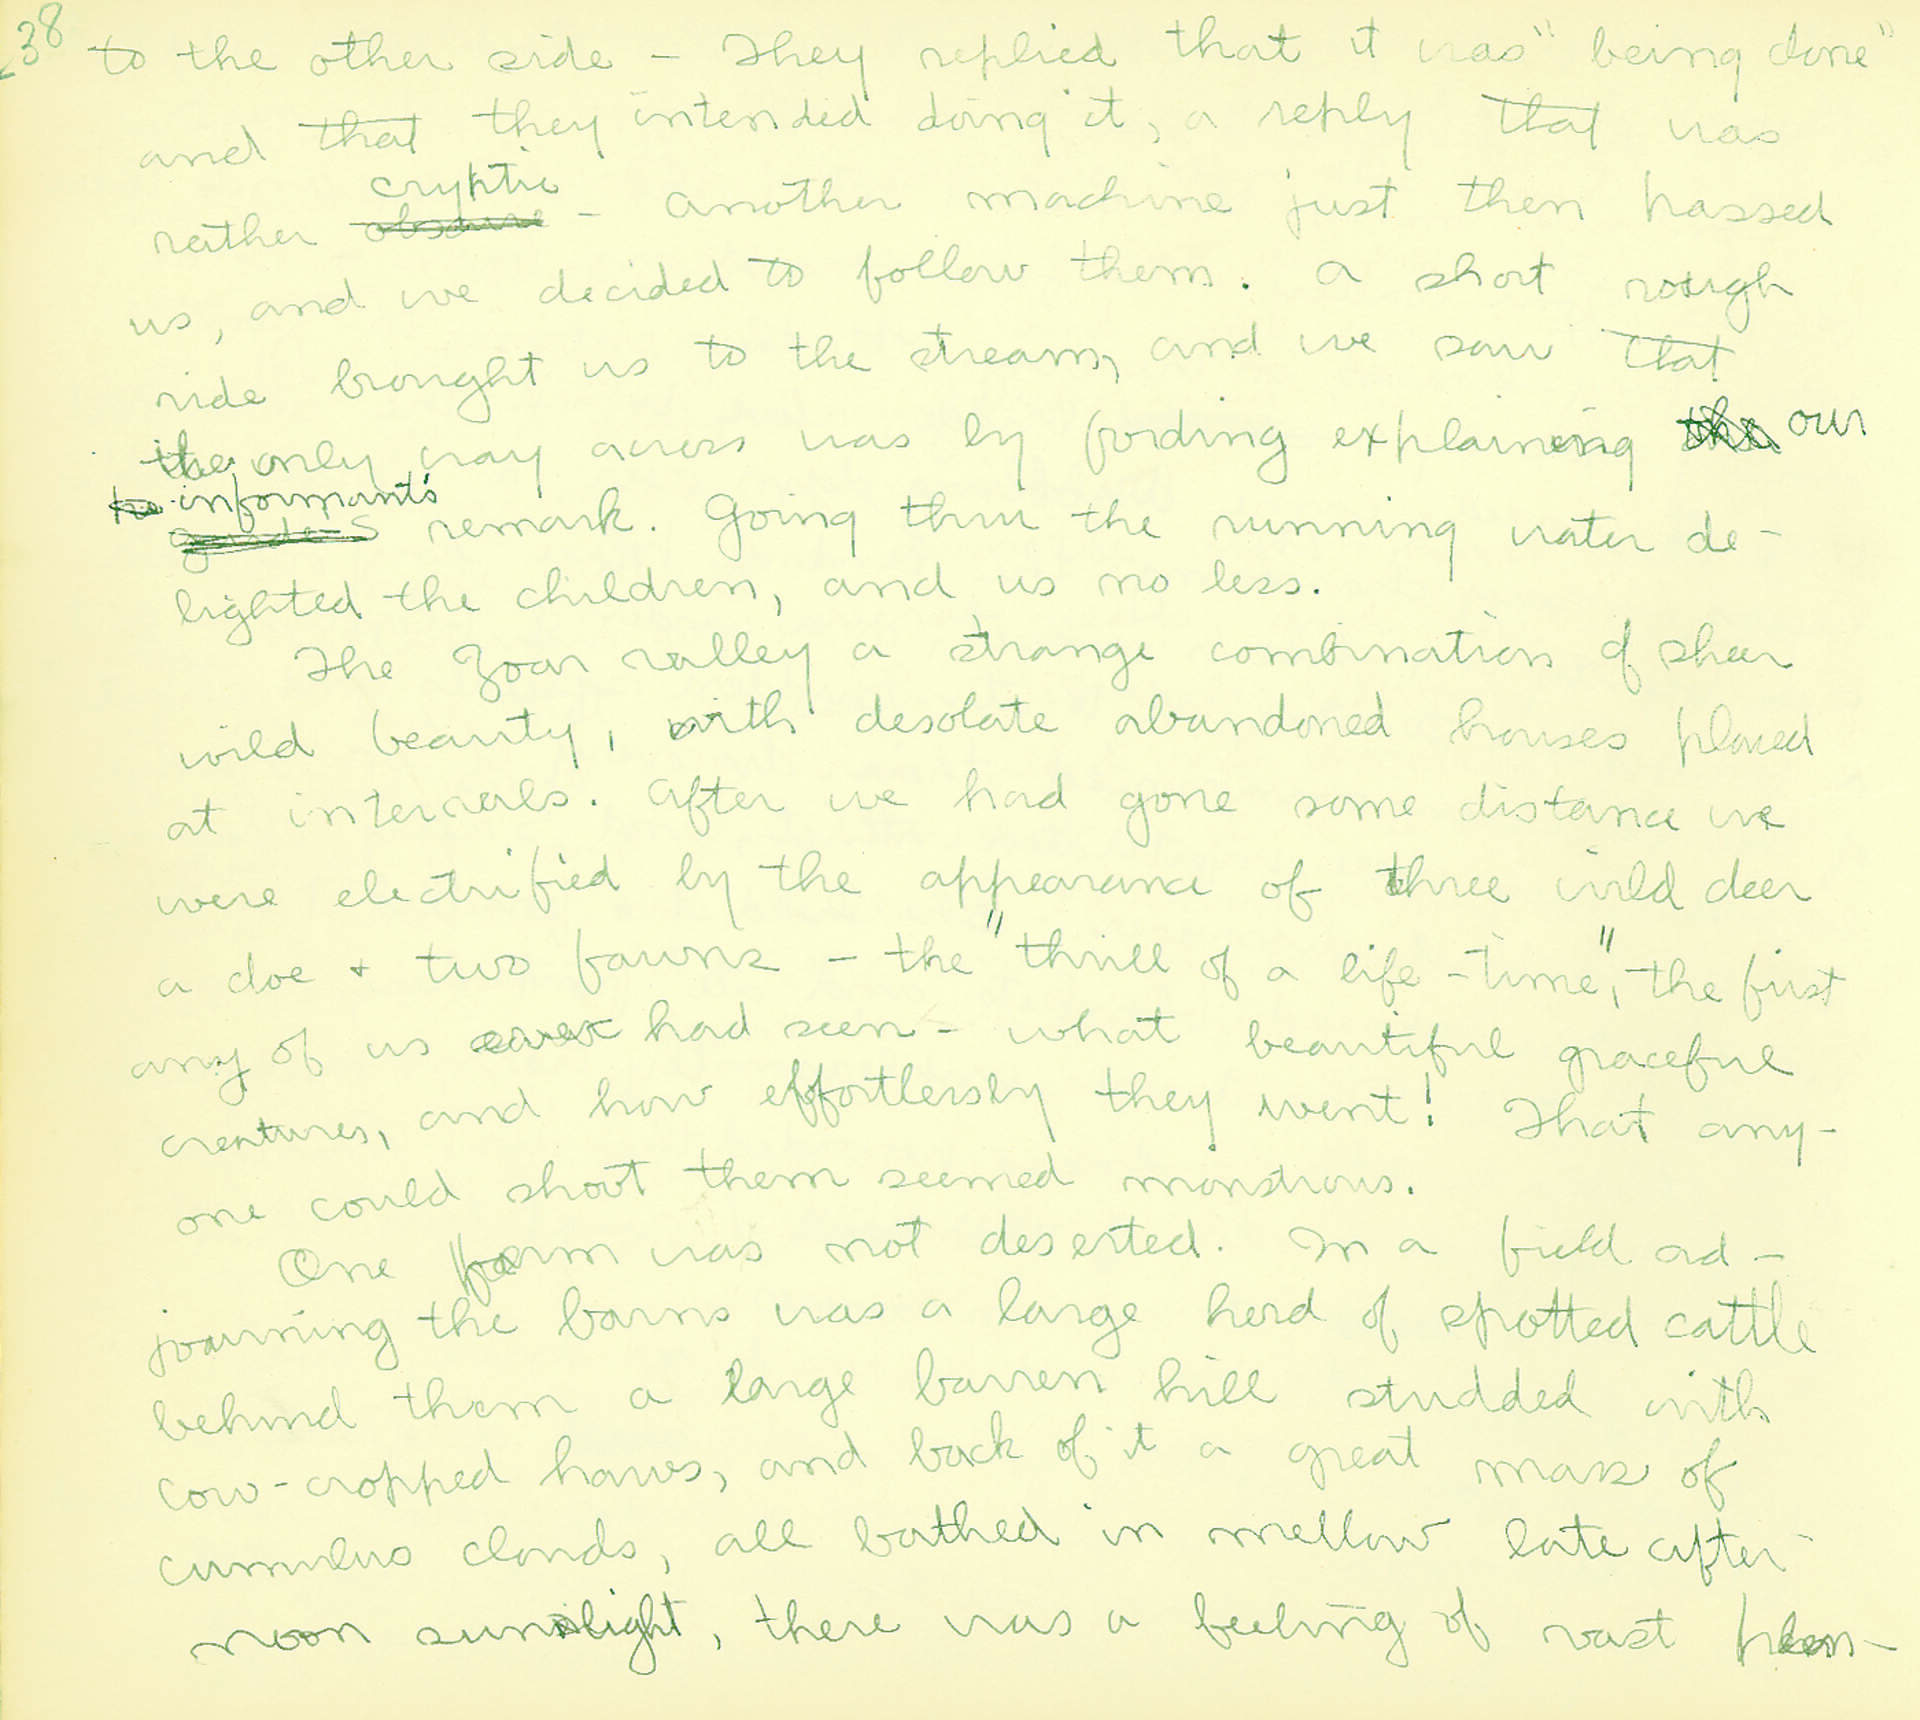 238
to the other side – They replied that it was "being done"
and that they intended doing it, a reply that was
cryptic
rather obscure – another machine just then passed
us, and we decided to follow them. a short rough
ride brought us to the stream, and we saw that
the only way across was by fording explaining the our
informant's
guide's remark. Going thru the running water de-
lighted the children, and us no less.
The Zoar valley a strange combination of sheer
wild beauty, with desolate abandoned houses placed
at intervals. After we had gone some distance we
were electrified by the appearance of three wild deer
a doe + two fawns – the "thrill of a life-time", the first
any of us ever had seen – what beautiful graceful
creatures, and how effortlessly they went! That any-
one could shoot them seemed monstrous.
One farm was not deserted. In a field ad-
joining the barns was a large herd of spotted cattle
behind them a large barren hill studded with
cow-cropped haws, and back of it a great mass of
cumulus clouds, all bathed in mellow late after-
noon sunlight, there was a feeling of vast